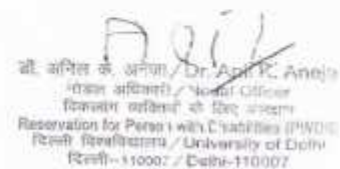 डॉ. अनिल क. अनेजा / Dr. Anil K. Aneja
नोडल अधिकारी / Nodal Officer
विकलांग व्यक्तियों के लिए आरक्षण
Reservation for Person with Disabilities (PWD)
दिल्ली विश्वविद्यालय / University of Delhi
दिल्ली-110007 / Delhi-110007